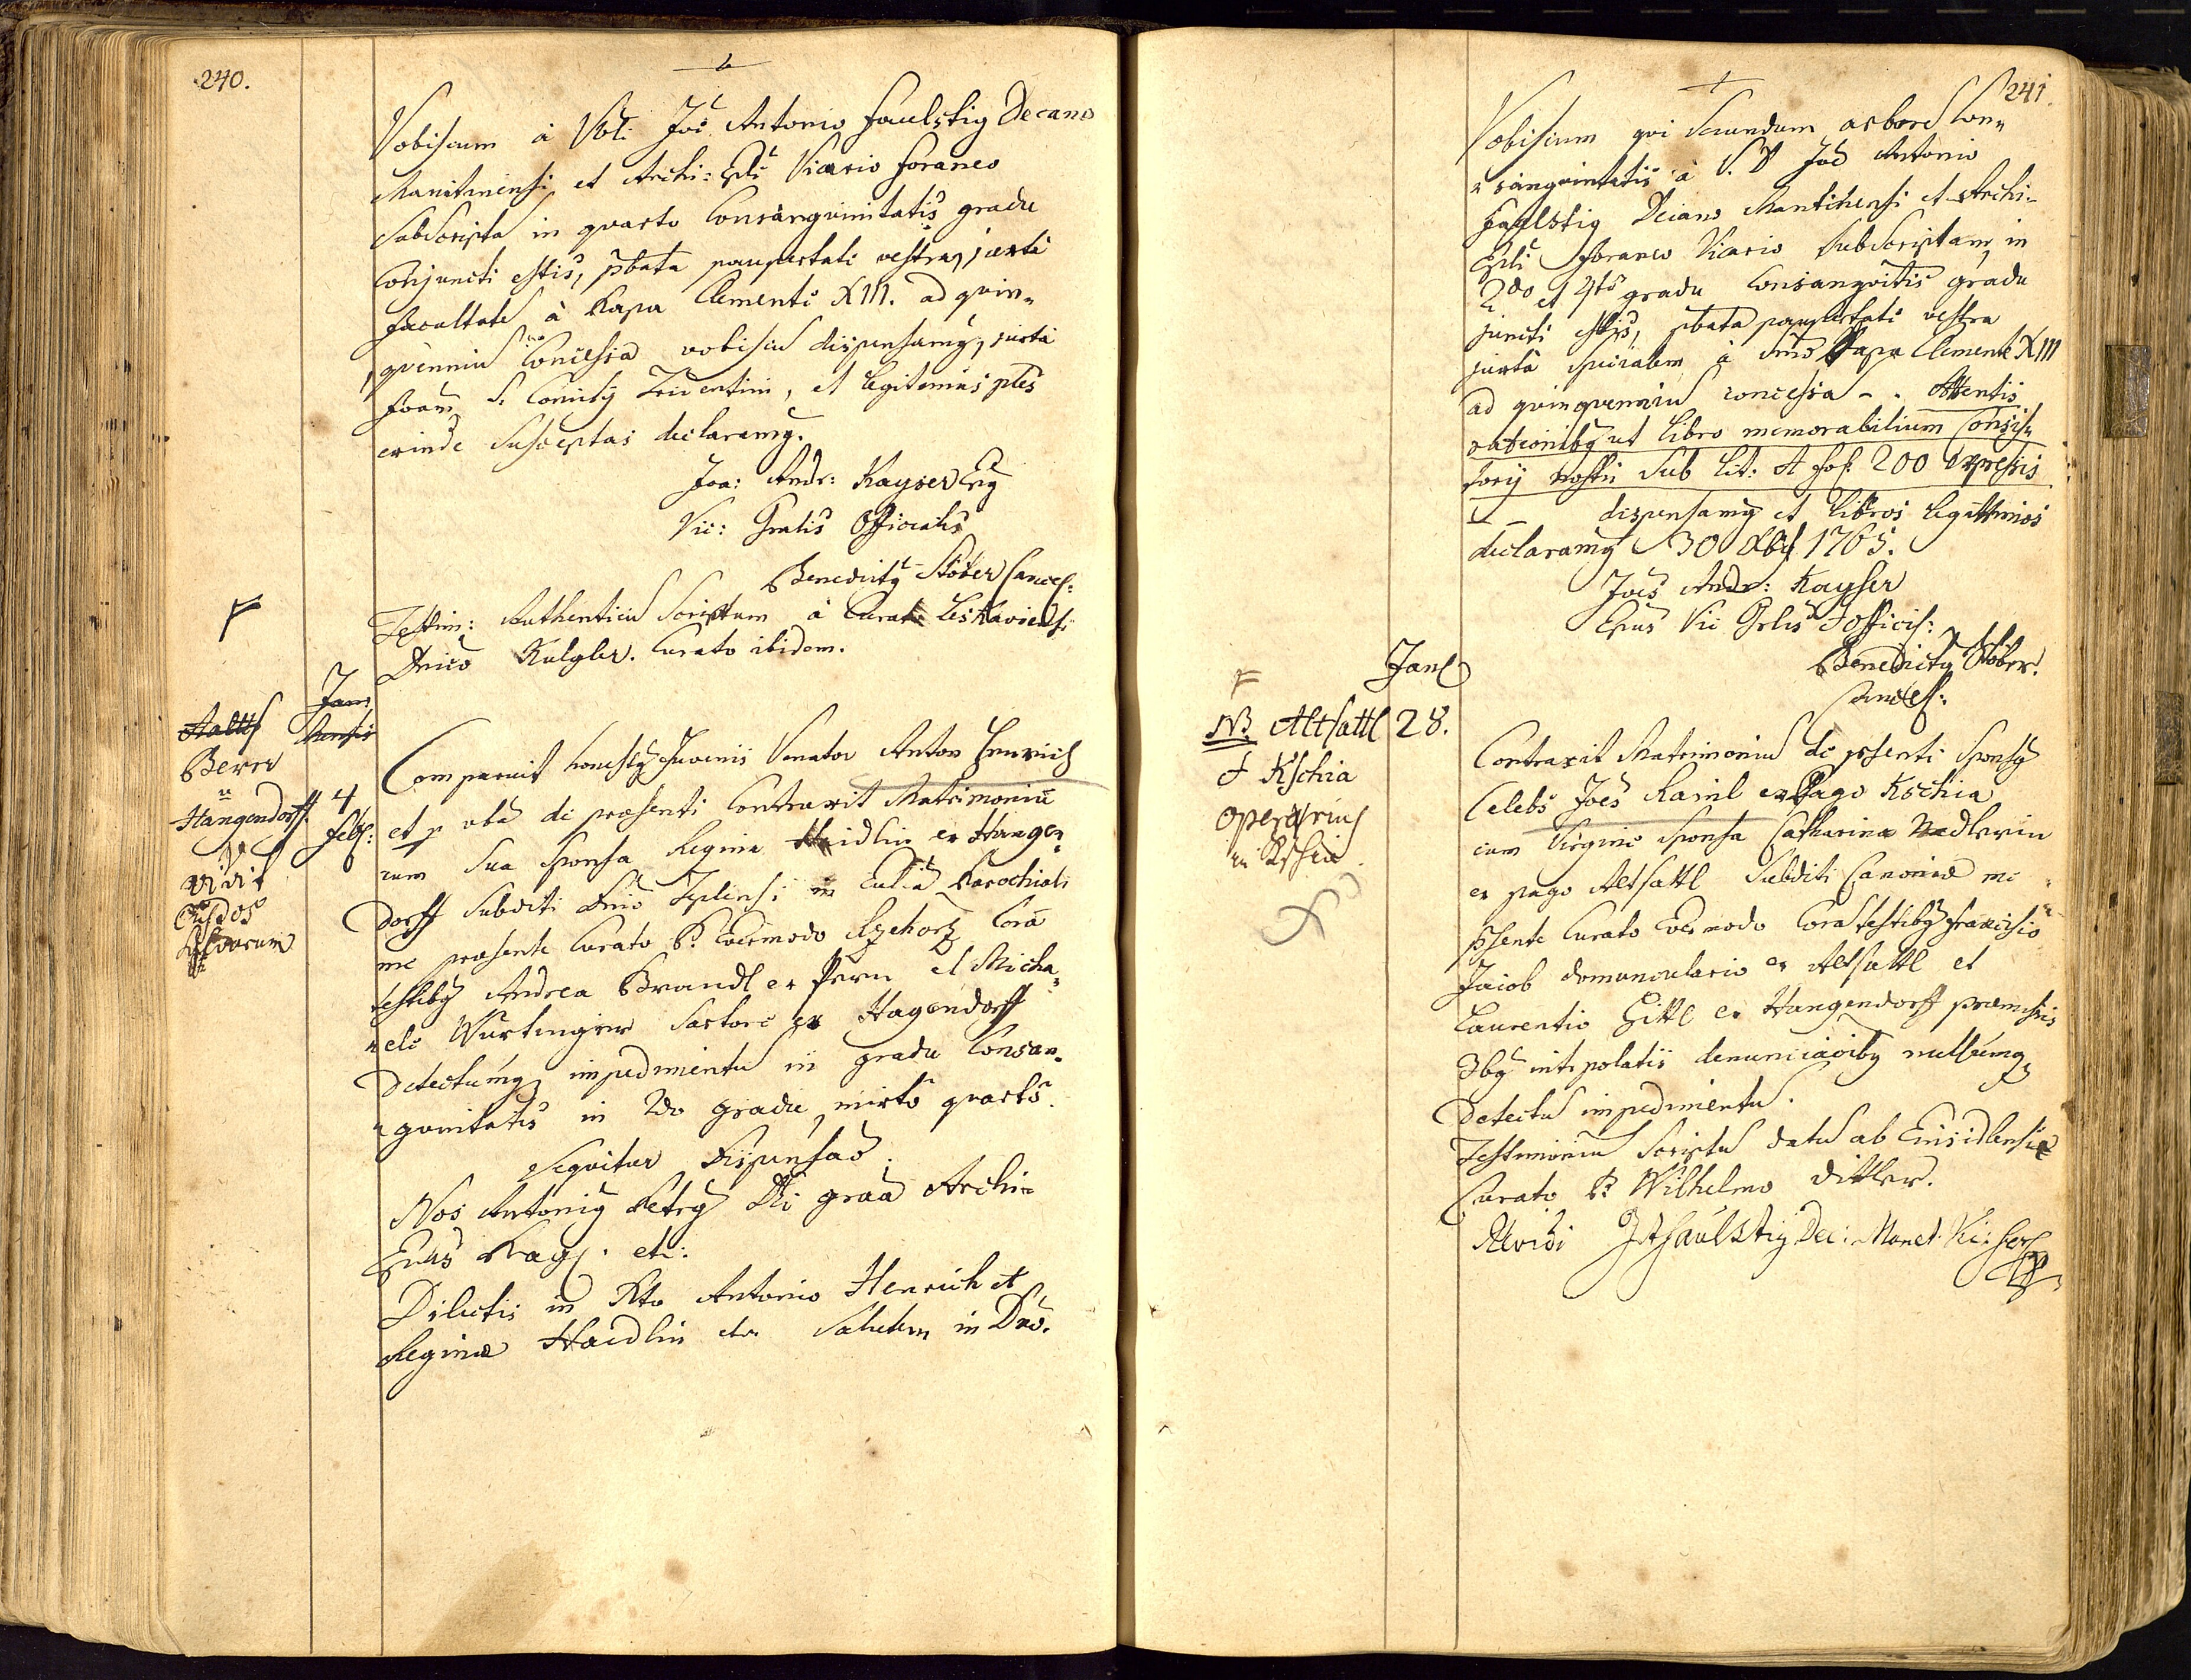 240.
Vobiscum à Joë Antonio Faulstig Decano
Manetinensi et Archi: Vicario foraneo
subscripta in quarto Consanguinitatis gradu
Conjuncti estis, pbata paupertate vestra, juxta
facultate à Papa Clemente XIII. ad quin„
„quenniu Concessa vobiscu dispensamq, juxta
formam S. Concilÿ Tridentini, et legitimas ples
exinde susceptas declaramq.
Joa: Andr: Kayser
Vic: Gnalis Officialis
Benedictq Stöber Cancel:
F
Testim: Authenticu Scriptum à Curato
Kulgler. Curato ibidem.
Jan
Comparuit honestq Juvenis Venator Anton Henrich
Berrn
Hangendorff.
4
Feb:
et p vba de praesenti Contraxit Matrimoniu
cum sua sponsa Regina Haidlin ex Hangen
vivit
dorff subditi Teplensi in Parochiali
me praesente Curato P. Evermodo Corã
testibq Andrea Brandl ex Pern et Micha„
„ele Würtinger Sartore ex Hagendorff
Detectumq impedimentu in gradu Consan„
„guinitatis in 2do gradu, mixto quarto.
Sequitur Dispensaõ.
Nos Antoniq Petrq Dei graã Archi„
Epus Prag. etc:
Dilectis in Xto Antonio Henrich et
Regina Haidlin etc Salutem in Dno.
241.
Vobiscum qui secundum arbore Con„
„sanguinitatis à Joë Antonio
Faulstig Decano Manetinensi et Archi„
Epli foraneo Vicario subscriptam in
2do et 4to gradu Consanguitis gradu
juncti estis, pbata paupertate vestra
juxta specialem à Papa Clemente XIII
ad quinquenniu concessa - . Attentis
rationibq ut libro memorabilium Consis„
torÿ nostri sub Lit: A fol: 200 expressis
dispensamq et libros legittimos
declaramq 30 Xbr 1765.
Joës Andr: Kayser
Epus Vic Gnlis Official:
Benedictq Stöber.
Cancel:
F
Jan
NB. Altsattl
28.
Contraxit Matrimoniu de psenti Sponsq
Kschia
Celebs Joës Raml ex Pago Kschia
operarius
cum Virgine Sponsa Catharina Nadlerin
in Kschia.
ex pago Altsattl Subditi Canoniae me
psente Curato Evermodo Cora testibq Francisco
Jacob domunculario ex Altsattl et
Laurentio Hittl ex Hangendorff praemissis
3bq intpolatis denunciaõibq nullumq
Detectu impedimentu.
Testimoniu Scriptu datu ab Einsidlensi
Curato P. Wilhelmo Dittler.
Revidi JAFaulstig Dec: Manet. Vic: for: